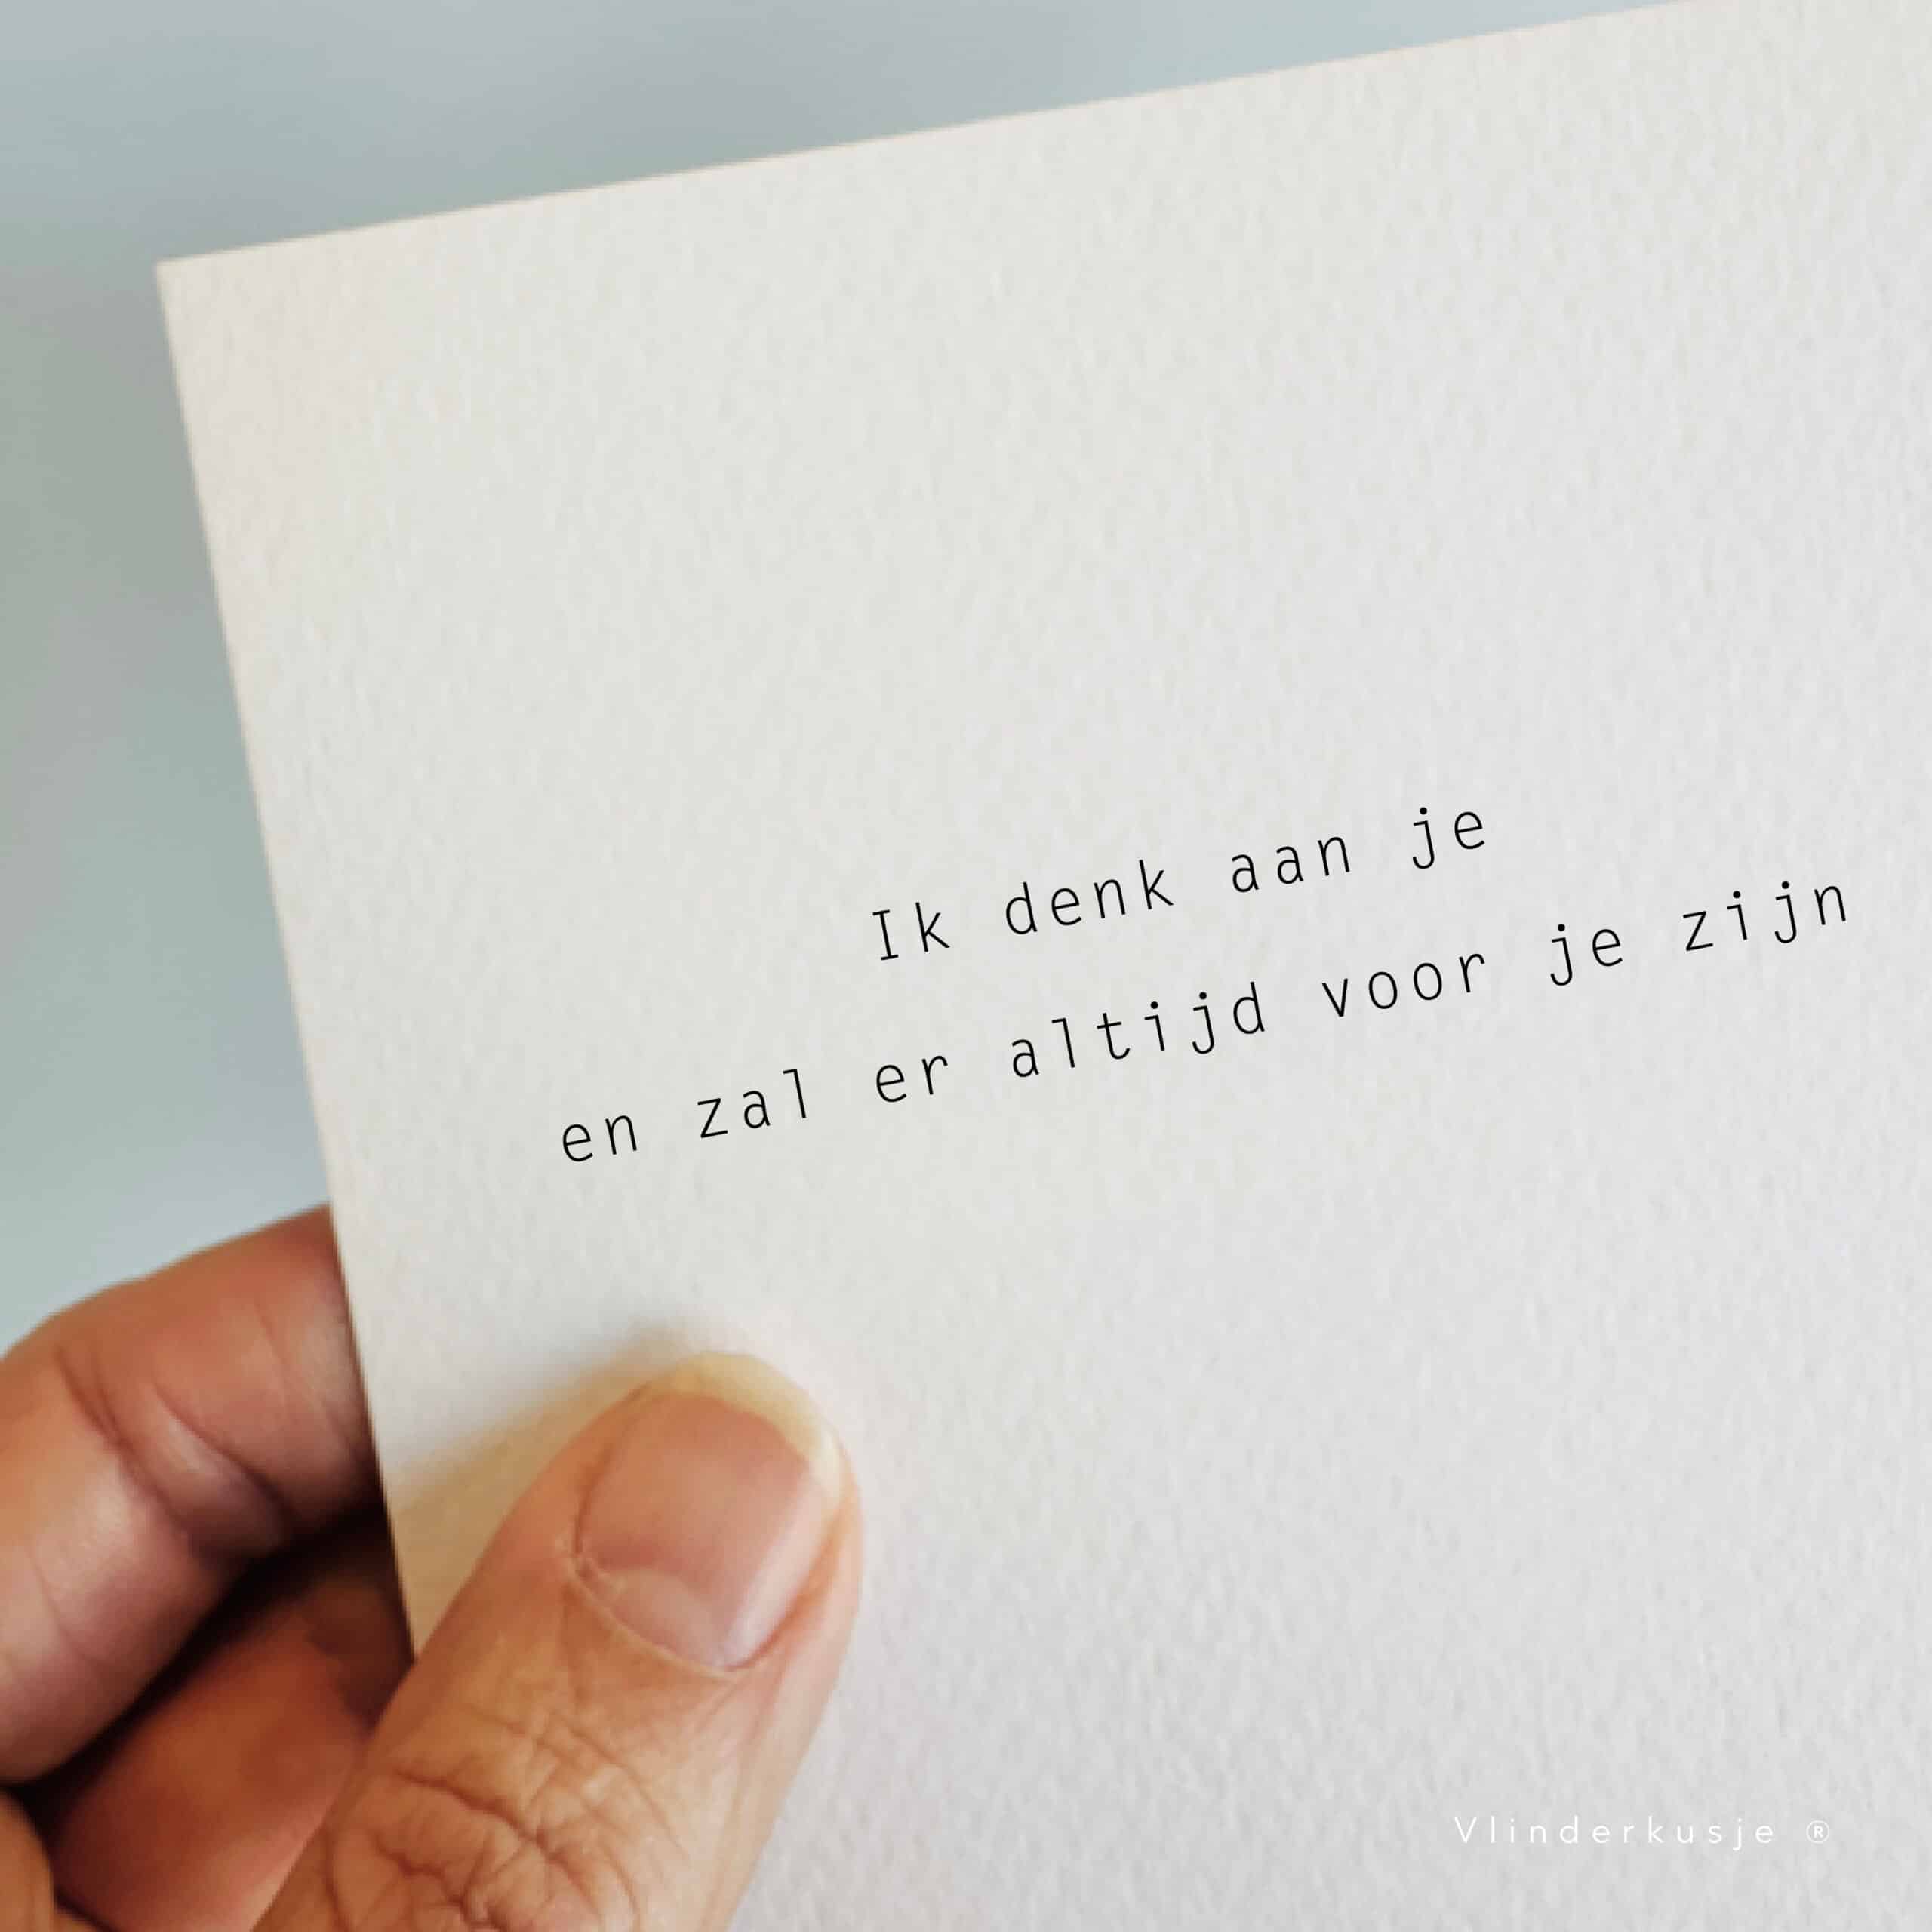 Ik denk aan je
en zal er altijd voor je zijn
Vlinderkusje ®